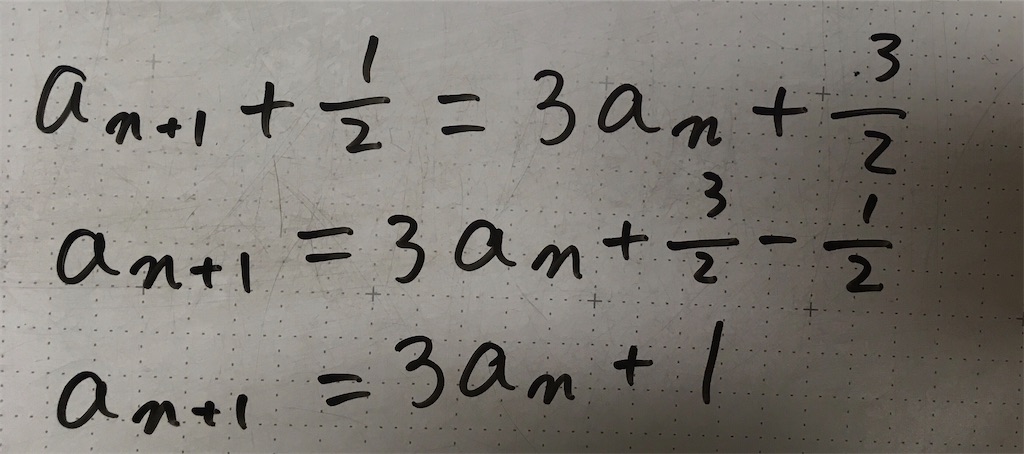 a_{n+1} + \frac{1}{2} = 3a_n + \frac{3}{2}
a_{n+1} = 3a_n + \frac{3}{2} - \frac{1}{2}
a_{n+1} = 3a_n + 1